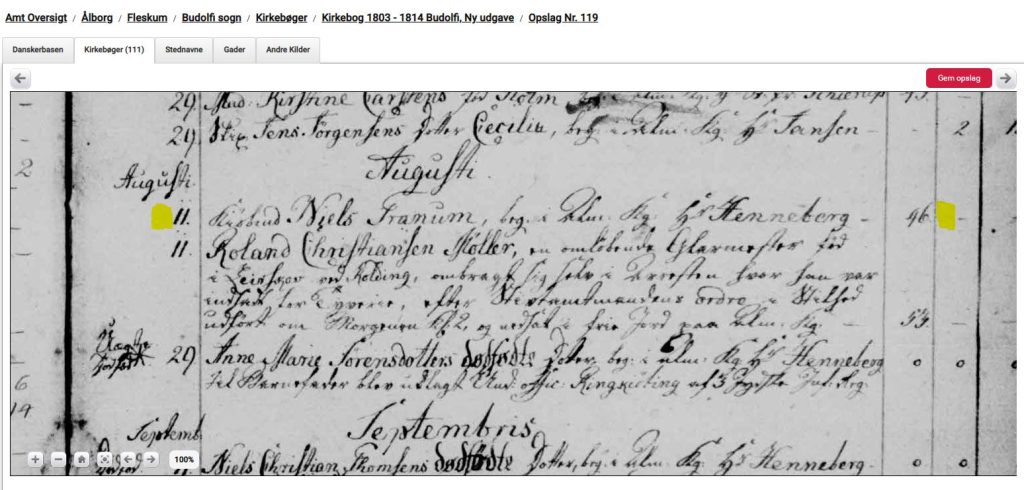 Amt Oversigt / Ålborg / Fleskum / Budolfi sogn / Kirkebøger / Kirkebog 1803 - 1814 Budolfi, Ny udgave / Opslag Nr. 119
Danskerbasen Kirkebøger (111) Stednavne Gader Andre Kilder
Gem opslag
29. Kirstine Carstens fød Holm
29. Jens Jörgensens Dotter Cecilia, beg. i Alm: Kg: Hr Jansen - - 2
2 Augusti.
Augusti.
11. Niels Franum, beg. i Alm: Kg: Hr Henneberg - 46. -
11. Roland Christiansen Möller, en omløbende Glarmester fød
i Leirskov ved Kolding, ombragt sig selv i Arresten hvor han var
indsat for Tyverie, efter Stiftamtmandens ordre i Stilhed
udført om Morgenen Kl. 2, og nedsat i frie Jord paa Alm: Kg: - 53. -
29. Anne Marie Sorensdotters dødfødte Dotter, beg. i Alm: Kg: Hr Henneberg 0 0
6 til Barnefader blev udlagt Und: offic: Ringkiöbing af 3 Jydske Inf: Reg:
14
Septembris
Septemb
100%
11. Niels Christian Thomsens dødfødte Dotter, beg. i Alm: Kg: Hr Henneberg - 0 0